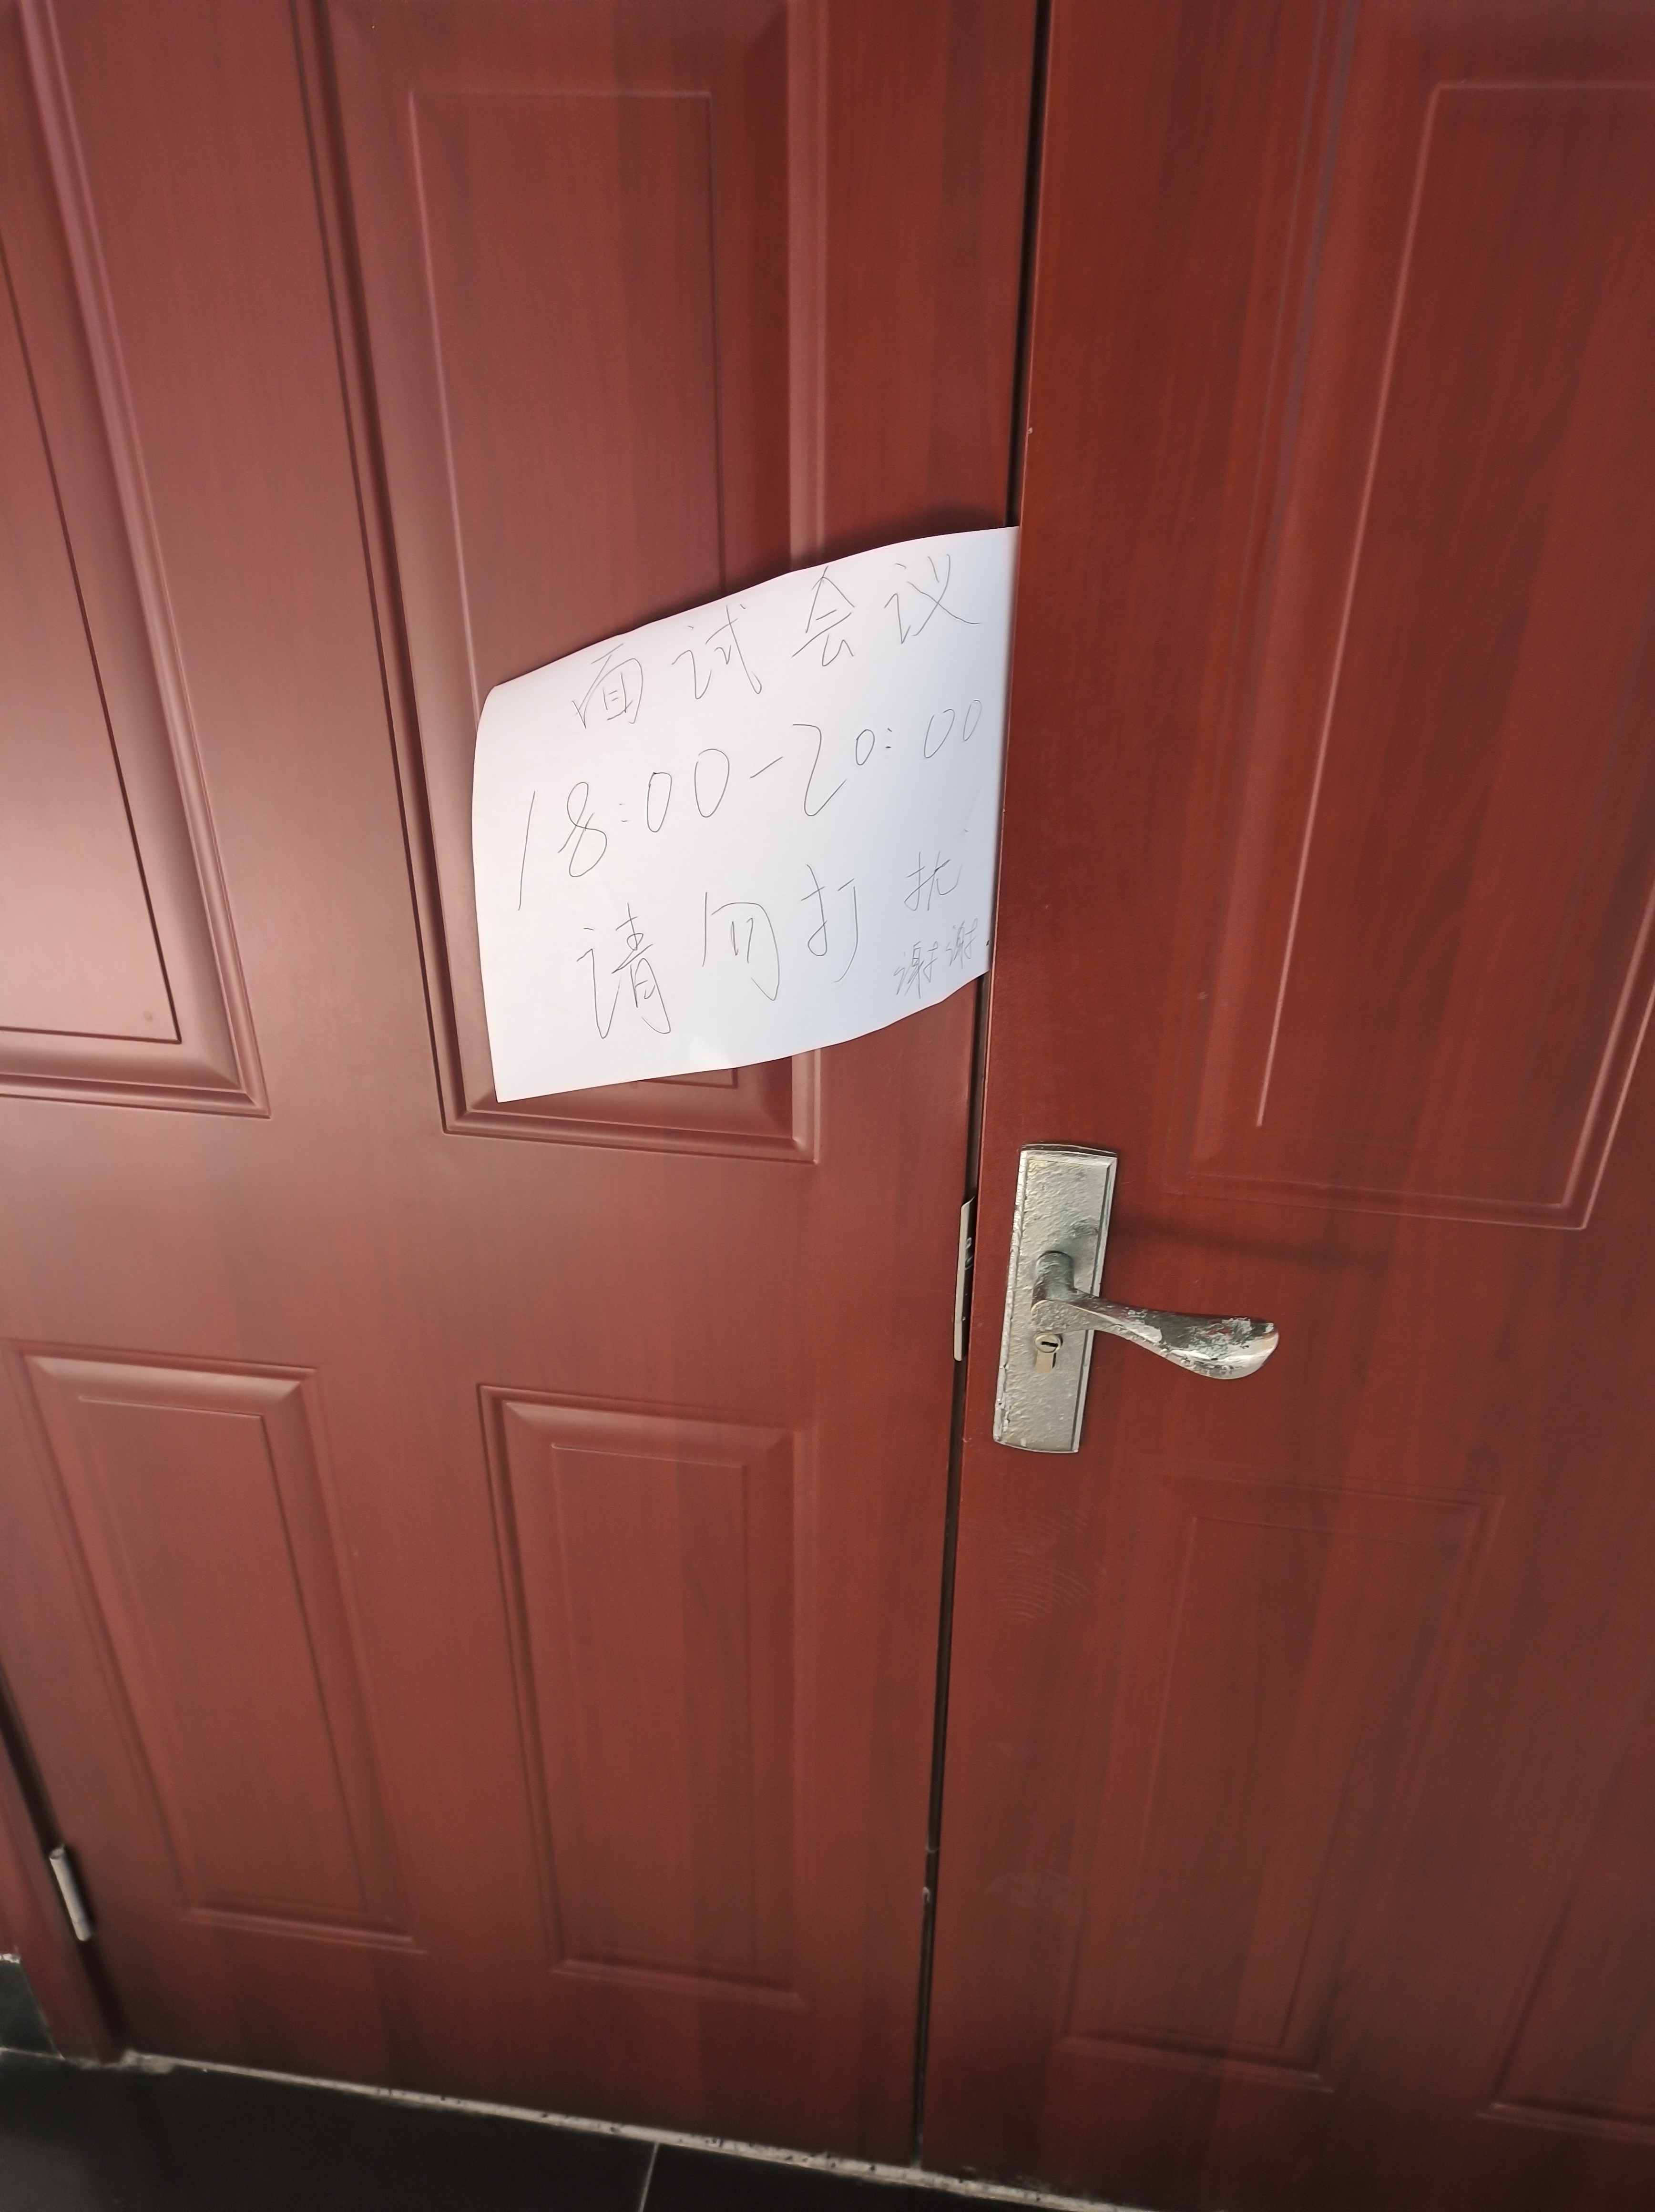 面试会议
18:00-20:00
请勿打扰
谢谢.